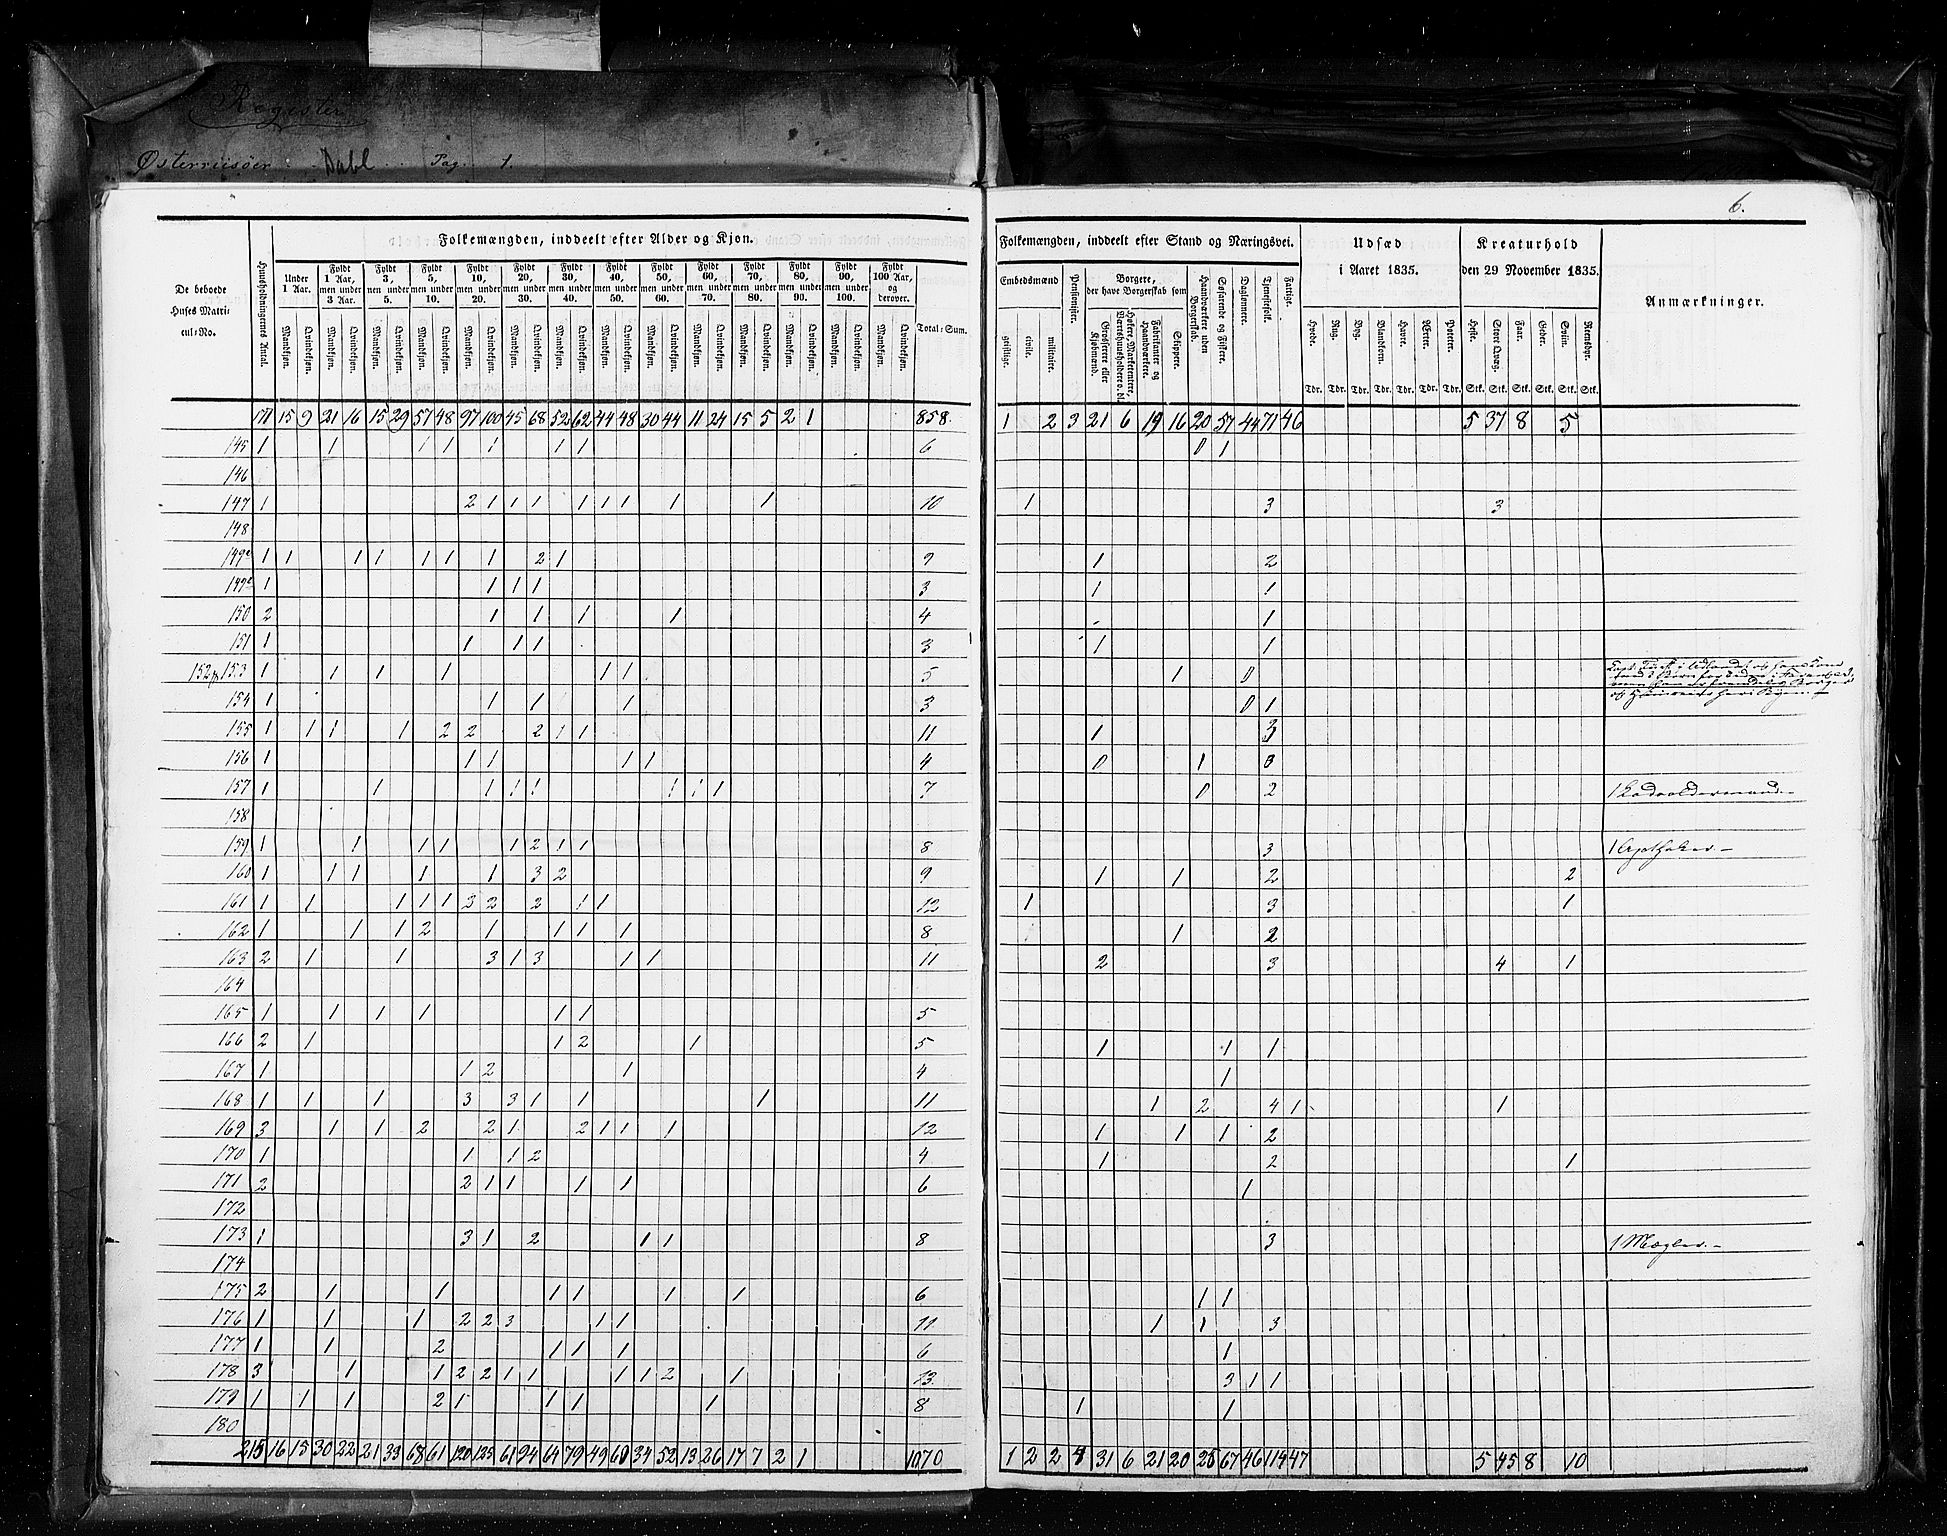 Register
Østerrisöer Dahl Pag. 1.
6.
Folkemængden, inddeelt efter Alder og Kjøn.
De beboede Huses Matricul-No.
Huusholdningernes Antal.
Under 1 Aar.
Fyldt 1 Aar, men under 3 Aar.
Fyldt 3, men under 5.
Fyldt 5, men under 10.
Fyldt 10, men under 20.
Fyldt 20, men under 30.
Fyldt 30, men under 40.
Fyldt 40, men under 50.
Fyldt 50, men under 60.
Fyldt 60, men under 70.
Fyldt 70, men under 80.
Fyldt 80, men under 90.
Fyldt 90, men under 100.
Fyldt 100 Aar, og derover.
Mandkjøn. Qvindekjøn. Mandkjøn. Qvindekjøn. Mandkjøn. Qvindekjøn. Mandkjøn. Qvindekjøn. Mandkjøn. Qvindekjøn. Mandkjøn. Qvindekjøn. Mandkjøn. Qvindekjøn. Mandkjøn. Qvindekjøn. Mandkjøn. Qvindekjøn. Mandkjøn. Qvindekjøn. Mandkjøn. Qvindekjøn. Mandkjøn. Qvindekjøn. Mandkjøn. Qvindekjøn. Mandkjøn. Qvindekjøn.
Total-Sum.
Folkemængden, inddeelt efter Stand og Næringsvei.
Embedsmænd
geistlige. civile. militaire.
Pensionister.
Borgere, der have Borgerskab som
Grosserere eller Kjøbmænd.
Høkere, Marketentere, Værtshuusholdere o. dl.
Fabrikanter og Haandværkere.
Skippere.
Haandværkere uden Borgerskab.
Søfarende og Fiskere.
Daglønnere.
Tjenestefolk.
Fattige.
Udsæd i Aaret 1835.
Hvede. Rug. Byg. Blandkorn. Havre. Erter. Poteter.
Tdr. Tdr. Tdr. Tdr. Tdr. Tdr. Tdr.
Kreaturhold den 29 November 1835.
Heste. Stort Qvæg. Faar. Geder. Sviin. Reensdyr.
Stk. Stk. Stk. Stk. Stk. Stk.
Anmærkninger.
171 15 9 21 16 15 29 57 48 97 100 45 68 52 62 44 48 30 44 11 24 15 5 2 1 858. 1 2 3 21 6 19 16 20 57 44 71 46 5 37 8 5
145 1 1 1 1 1 1 1 6 0 1
146
147 1 2 1 1 1 1 1 1 1 1 10 1 3 3
148
149a 1 1 1 1 1 1 1 2 1 9 1 2
149c 1 1 1 1 3 1 1
150 2 1 1 1 1 4 1
151 1 1 1 1 3 1 1
152 153 1 1 1 1 1 1 5 1 0
154 1 1 1 1 3 0 1
155 1 1 1 1 2 2 2 1 1 11 1 3
156 1 1 1 1 1 4 0 1 0
157 1 1 1 1 1 1 1 1 7 0 2 1 Lodsoldermand.
158
159 1 1 1 1 1 2 1 1 8 3 1 Apotheker.
160 1 1 1 1 1 3 2 9 1 1 2 2
161 1 1 1 1 1 2 2 2 1 1 12 1 3 1
162 1 1 1 2 1 1 1 1 8 1 2
163 2 1 1 3 1 3 1 1 11 2 3 4 1
164
165 1 1 1 1 1 1 5
166 2 1 1 2 1 5 1 1 1
167 1 1 2 1 4 1
168 1 1 1 3 3 1 1 1 11 1 2 4 1 1
169 3 1 1 2 2 1 2 1 1 1 12 1 1 1 2
170 1 1 1 2 4 1 2 1
171 2 2 1 1 1 1 6 1
172
173 1 3 1 2 1 1 8 3 1 Mægler.
174
175 2 1 1 1 1 1 1 6 1 1
176 1 1 1 2 2 3 1 1 11 1 1 3
177 1 1 2 1 1 1 6 1
178 3 1 1 2 2 1 1 1 1 2 1 13 3 1 1
179 1 1 1 2 1 1 1 1 8 1 1
180
215 16 15 30 22 21 33 68 61 120 125 61 94 64 79 49 60 34 52 13 26 17 7 2 1 1070 1 2 2 4 31 6 21 20 25 67 46 114 47 5 45 8 10